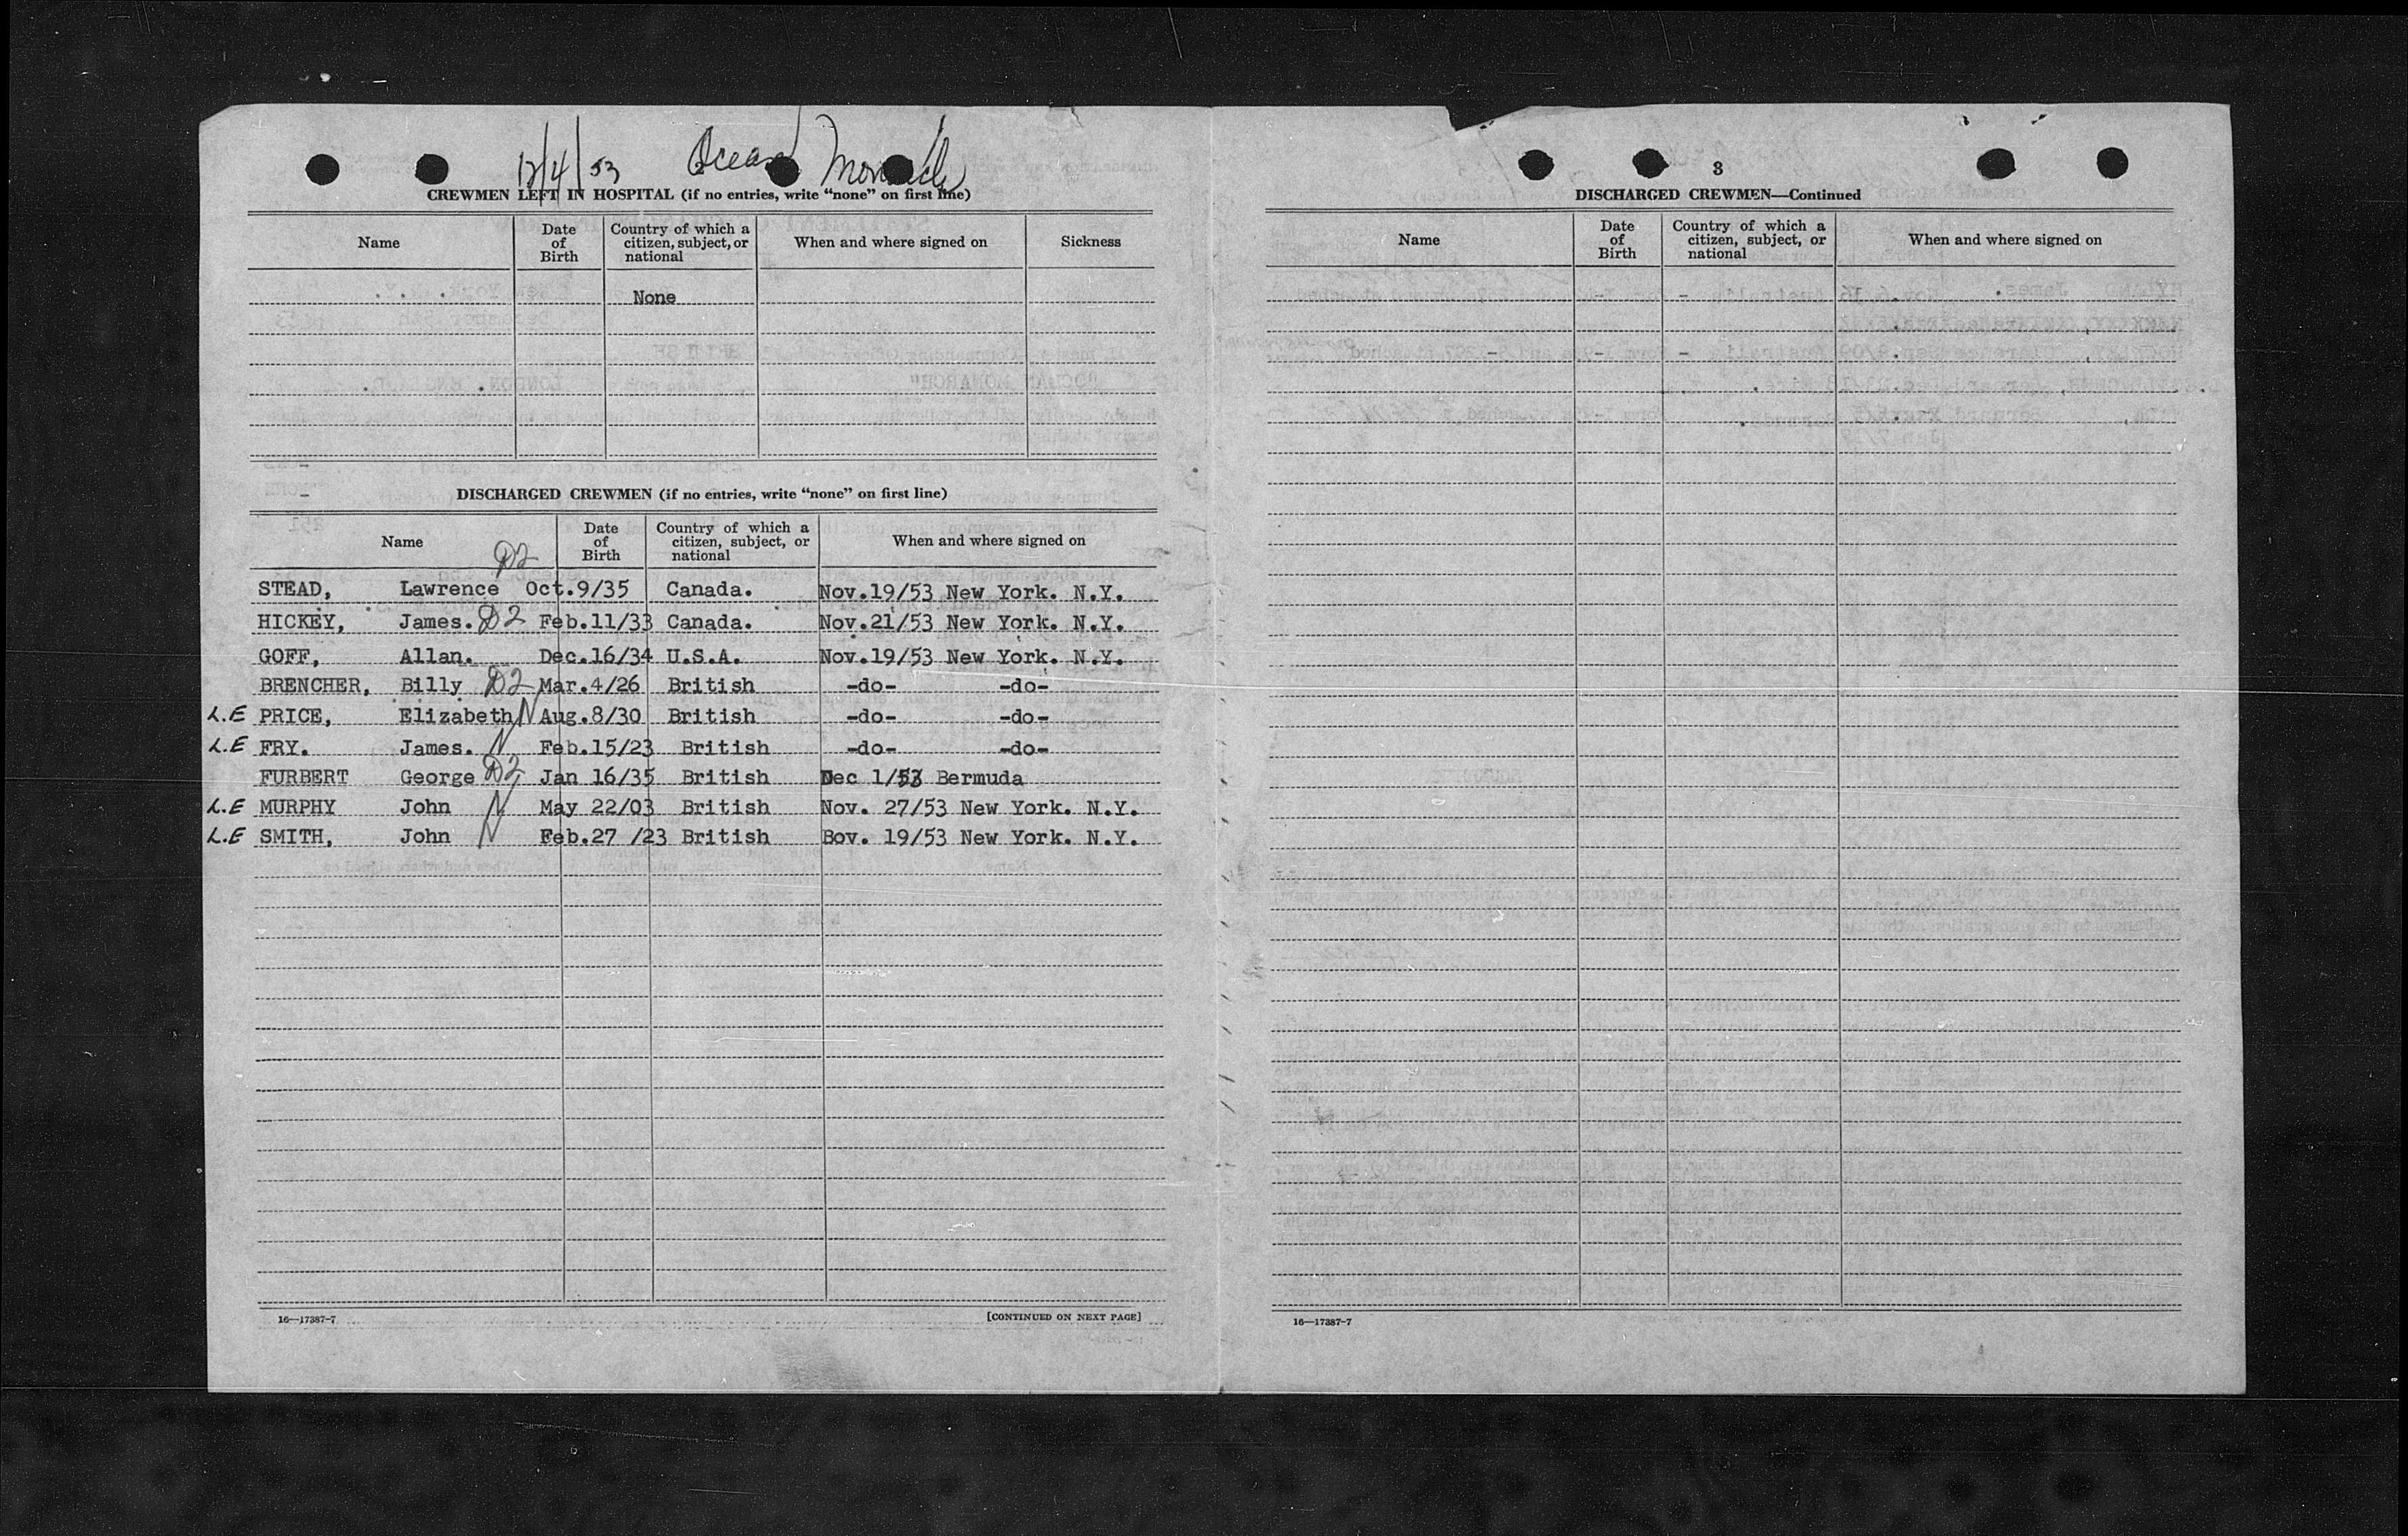 12/4/53 Ocean Monarch
CREWMEN LEFT IN HOSPITAL (if no entries, write “none” on first line)
Name
Date of Birth
Country of which a citizen, subject, or national
When and where signed on
Sickness
None
DISCHARGED CREWMEN (if no entries, write “none” on first line)
Name
Date of Birth
Country of which a citizen, subject, or national
When and where signed on
D2
STEAD, Lawrence Oct.9/35 Canada. Nov.19/53 New York. N.Y.
HICKEY, James. D2 Feb.11/33 Canada. Nov.21/53 New York. N.Y.
GOFF, Allan. Dec.16/34 U.S.A. Nov.19/53 New York. N.Y.
BRENCHER, Billy D2 Mar.4/26 British -do- -do-
L.E PRICE, Elizabeth N Aug.8/30 British -do- -do-
L.E FRY. James. N Feb.15/23 British -do- -do-
FURBERT George D2 Jan 16/35 British Dec 1/53 Bermuda
L.E MURPHY John N May 22/03 British Nov. 27/53 New York. N.Y.
L.E SMITH, John N Feb.27 /23 British Bov. 19/53 New York. N.Y.
16—17387-7
[CONTINUED ON NEXT PAGE]
3
DISCHARGED CREWMEN—Continued
Name
Date of Birth
Country of which a citizen, subject, or national
When and where signed on
16—17387-7